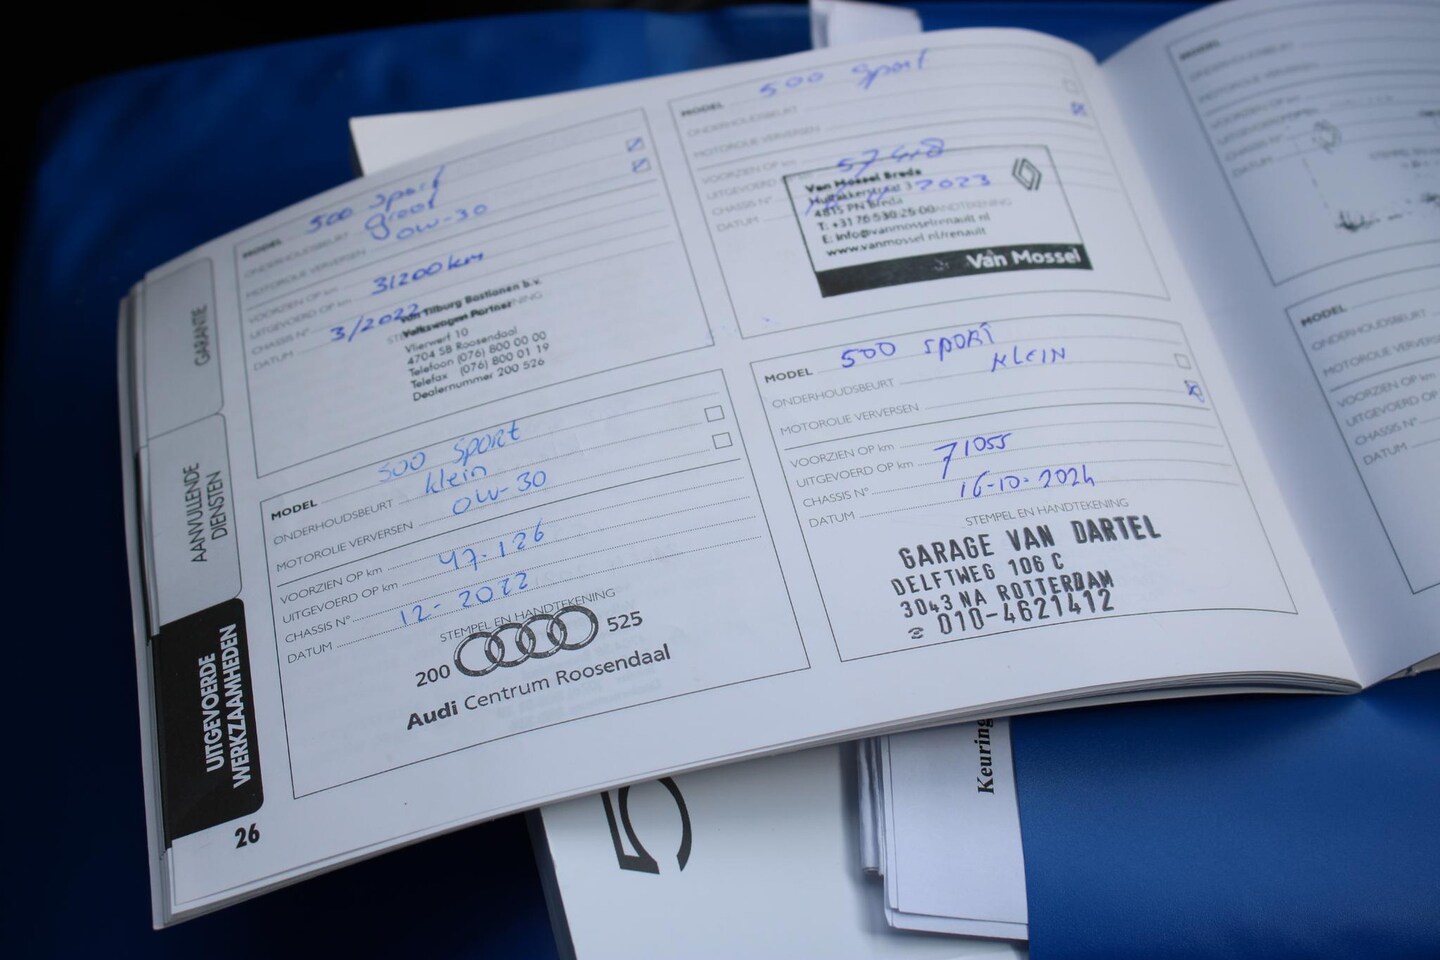 GARANTIE
AANVULLENDE
DIENSTEN
UITGEVOERDE
WERKZAAMHEDEN
26
MODEL 500 Sport
ONDERHOUDSBEURT groot
MOTOROLIE VERVERSEN 0W-30
VOORZIEN OP km
UITGEVOERD OP km 31200 km
CHASSIS N°
DATUM 3/2022
Van Tilburg Bastionen b.v.
Volkswagen Partner
Vlierwerf 10
4704 SB Roosendaal
Telefoon (076) 800 00 00
Telefax (076) 800 01 19
Dealernummer 200 526
MODEL 500 Sport
ONDERHOUDSBEURT klein
MOTOROLIE VERVERSEN 0W-30
VOORZIEN OP km
UITGEVOERD OP km 47.126
CHASSIS N°
DATUM 12-2022
STEMPEL EN HANDTEKENING
200 525
Audi Centrum Roosendaal
MODEL 500 Sport
ONDERHOUDSBEURT
MOTOROLIE VERVERSEN
VOORZIEN OP km
UITGEVOERD
CHASSIS N° 2023
DATUM
Van Mossel Breda
4815 PN Breda
T: +31 76 530 26 00
E: info@vanmosselrenault.nl
www.vanmossel.nl/renault
Van Mossel
MODEL 500 SPORT
ONDERHOUDSBEURT KLEIN
MOTOROLIE VERVERSEN
VOORZIEN OP km
UITGEVOERD OP km 71055
CHASSIS N°
DATUM 16-10-2024
STEMPEL EN HANDTEKENING
GARAGE VAN DARTEL
DELFTWEG 106 C
3043 NA ROTTERDAM
010-4621412
MODEL
ONDERHOUDSBEURT
MODEL
ONDERHOUDSBEURT
MOTOROLIE VERVERSEN
VOORZIEN OP km
UITGEVOERD OP
CHASSIS N°
DATUM
Keuring